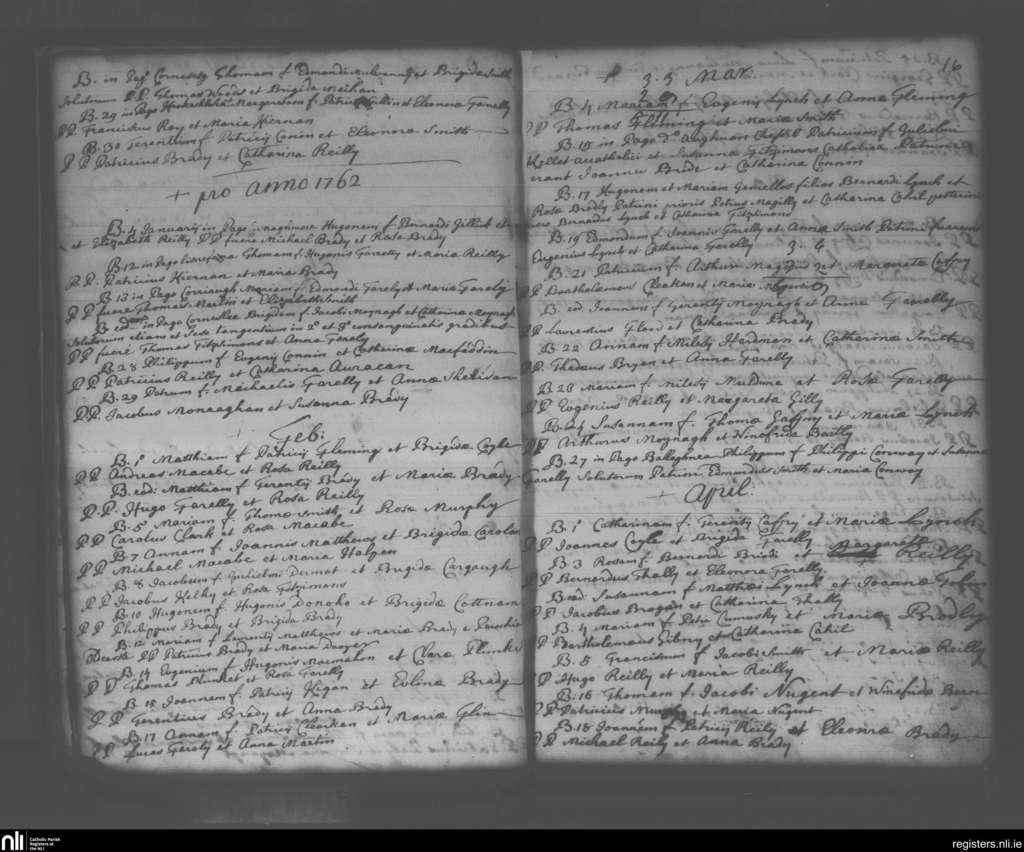 B. in Pago Thomam f. Edmondi mulvanny et Brigidæ Smith
Solutorum PP Thomas Woods et Brigida Meihan
B. 29 in Pago Margaretam f. Patricii et Eleonora Garelly
PP Franciskus Roy et Maria Hiernan
B. 30 Terentium f. Patricij Conin et Eleonora Smith
PP Patricius Brady et Catharina Reilly
+ pro anno 1762
B. 4 Januarij in Pago Hugonem f. Bernardi et
et Elizabeth Reilly PP fuere Michael Brady et Rosa Brady
B. 12 in Pago Thomam f. Hugonis Garelly et Maria Reilly
PP. Patricius Hiernan et Maria Brady
B 13 in Pago Corriaugh Mariam f. Edmondi Garely et Maria Garely
PP fuere Thomas Martin et Elizabeth Smith
B eod. in Pago Cornaslee Brigidam f. Jacobi Moynagh et Catharina Moynagh
Solutorum etiam et sese tangentium in 2o et 3o consanguinitis gradibus
PP fuere Thomas Fitzsimons et Anna Garely
B. 28 Philippum f. Eugenij Connin et Catharina Macfaddin
PP Patricius Reilly et Catharina
B. 29 Petrum f. Michaelis Garelly et Anna Sheridan
PP. Jacobus Monaaghan et Susanna Brady
Feb:
B. 1o Matthiam f. Patricij Fleming et Brigidæ Coyle
PP Andreas Macabe et Rosa Reilly
B. eod: Matthiam f. Terenty Brady et Mariæ Brady
PP. Hugo Garelly et Rosa Reilly
B. 5 Mariam f. Thomæ Smith et Rosæ Murphy
PP Carolus Clark et Rosa Macabe
B. 7 Annam f. Joannis Matthews et Brigidæ Carolan
PP Michael Macabe et Maria Halpen
B. 8 Jacobum f. Gulielmi Dermot et Brigida
PP Jacobus Kelky et Rosa Fitzimons
B. 10 Hugonem f. Hugonis Donoho et Brigidæ Cottnam
PP Philippus Brady et Brigida Brady
B. 12 Mariam f. Laurenty Matthews et Maria Brady e Parochia
PP Patricius Brady et Maria
B. 14 Eugenium f. Hugonis Macmahon et Clara Plunket
PP Thomas Plunket et Rosa Garelly
B. 15 Joannem f. Patricij Kigan et Evlina Brady
PP Terentius Brady et Anna Brady
B. 17 Annam f. Patricij Clearkan et Mariæ Glin
PP Lucas Garely et Anna Martin
16
+ 3. 3 Mar:
B. 4 Mariam f. Eugenij Lynch et Anna Fleming
PP Thomas Fleming et Maria Smith
B. 15 in Pago Patricium f. Gulielmi
Kellet accatholici et Susanna Fitzimons Catholica Patrini
erant Joannes Bride et Catharina Connin
B. 17 Hugonem et Mariam gemellos filios Bernardi Lynch et
Rosæ Bradly Patrini prioris Petrus Magilly et Catharina Cahil posterioris
vero Bernardus Lynch et Catharina Fitzsimons
B. 19 Edmondum f. Joannis Garelly et Anna Smith Patrini fuerunt
Eugenius Lynch et Catharina Garelly 3. 4
B. 21 Patricium f. Arthuri et Margareta Cafry
PP Bartholameus Cleaken et Maria
B. eod. Joannem f. Terenty Moynagh et Anna Garelly
PP Laurentius Flood et Catharina Brady
B. 22 Annam f. Milesij Herdman et Catharina Smith
PP. Thadeus Bryan et Anna Garelly
B. 23 Mariam f. Milesij et Rosa Garelly
PP Eugenius Reilly et Margareta Gilly
B. 24 Susannam f. Thomæ Gaffny et Mariæ Lynch
PP Arthurus Moynagh et Winefrida Bailly
B. 27 in Pago Philippum f. Philippi Conway et Susanna
Garelly Solutorum Patrini Edmondus Smith et Maria Conway
+ April:
B. 1o Catharinam f. Terenty Cafry et Mariæ Lynch
PP Joannes Coyle et Brigida Garelly
B. 3 Rosam f. Bernardi Briodi et Margareta Reilly
PP Bernardus Thally et Eleonora Garelly
B. eod. Susannam f. Matthæi Lynch et Joanna
PP Jacobus Brogan et Catharina Thally
B. 4 Mariam f. Petri et Mariæ Brodly
P Bartholemaus Gibny et Catharina Cahil
B. 5 Franciscum f. Jacobi Smith et Mariæ Reilly
P Hugo Reilly et Maria Reilly
B. 16 Thomam f. Jacobi Nugent et Winefrida Bern
PP Patricius et Maria Nugent
B. 18 Joannem f. Patricij Reily et Eleonora Brady
PP Michael Reily et Anna Brady
nli Catholic Parish Registers at the NLI
registers.nli.ie